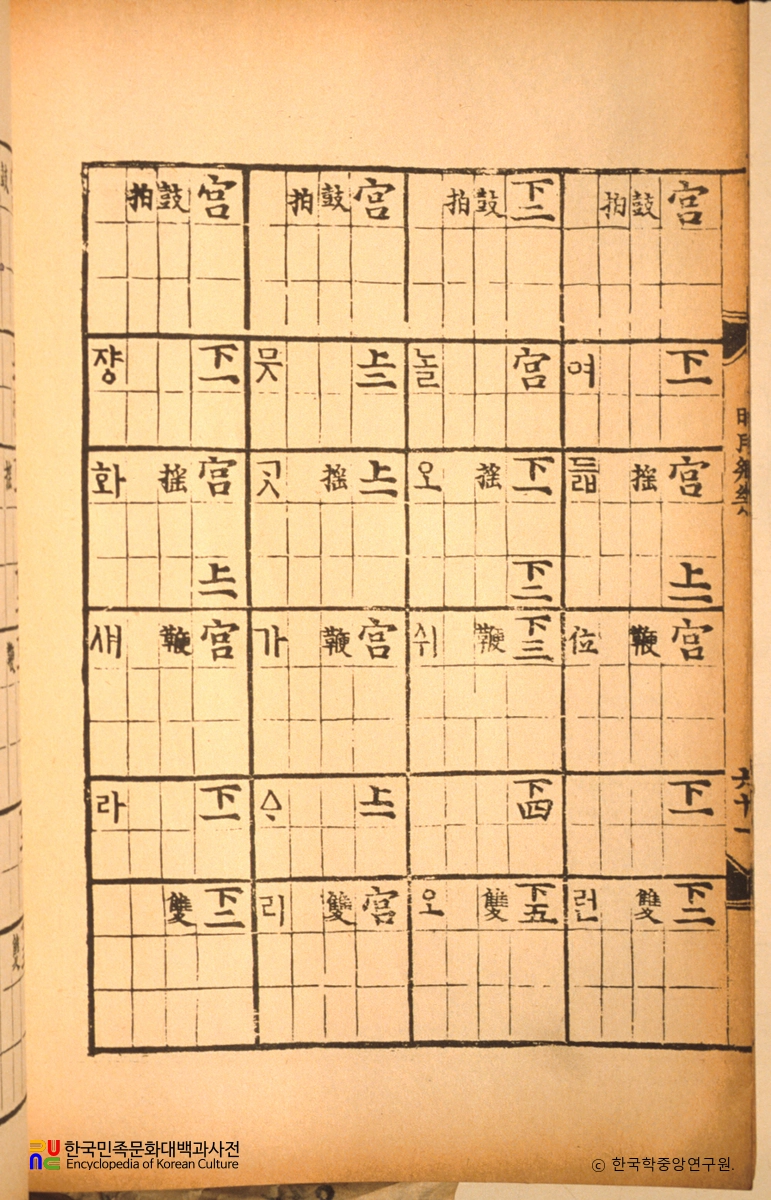 宮 下一 宮 上一 宮 下一 下二
鼓 搖 鞭 雙
拍
여 듧 位 런
下二 宮 下一 下二 下三 下四 下五
鼓 搖 鞭 雙
拍
놀 오 쉬 오
宮 上二 上一 宮 上一 宮
鼓 搖 鞭 雙
拍
믓 곳 가 ᅀᆞ 리
宮 下一 宮 上一 宮 下一 下二
鼓 搖 鞭 雙
拍
쟝 화 새 라
한국민족문화대백과사전
Encyclopedia of Korean Culture
© 한국학중앙연구원.